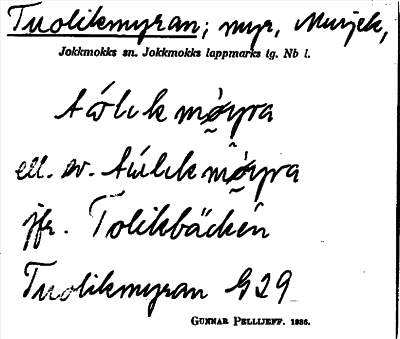 Tuolikmyran; myr, Murjek,
Jokkmokks sn. Jokkmokks lappmarks tg. Nb l.
ell. sv.
jfr. Tolikbäcken
Tuolikmyran G29
GUNNAR PELLIJEFF. 1936.